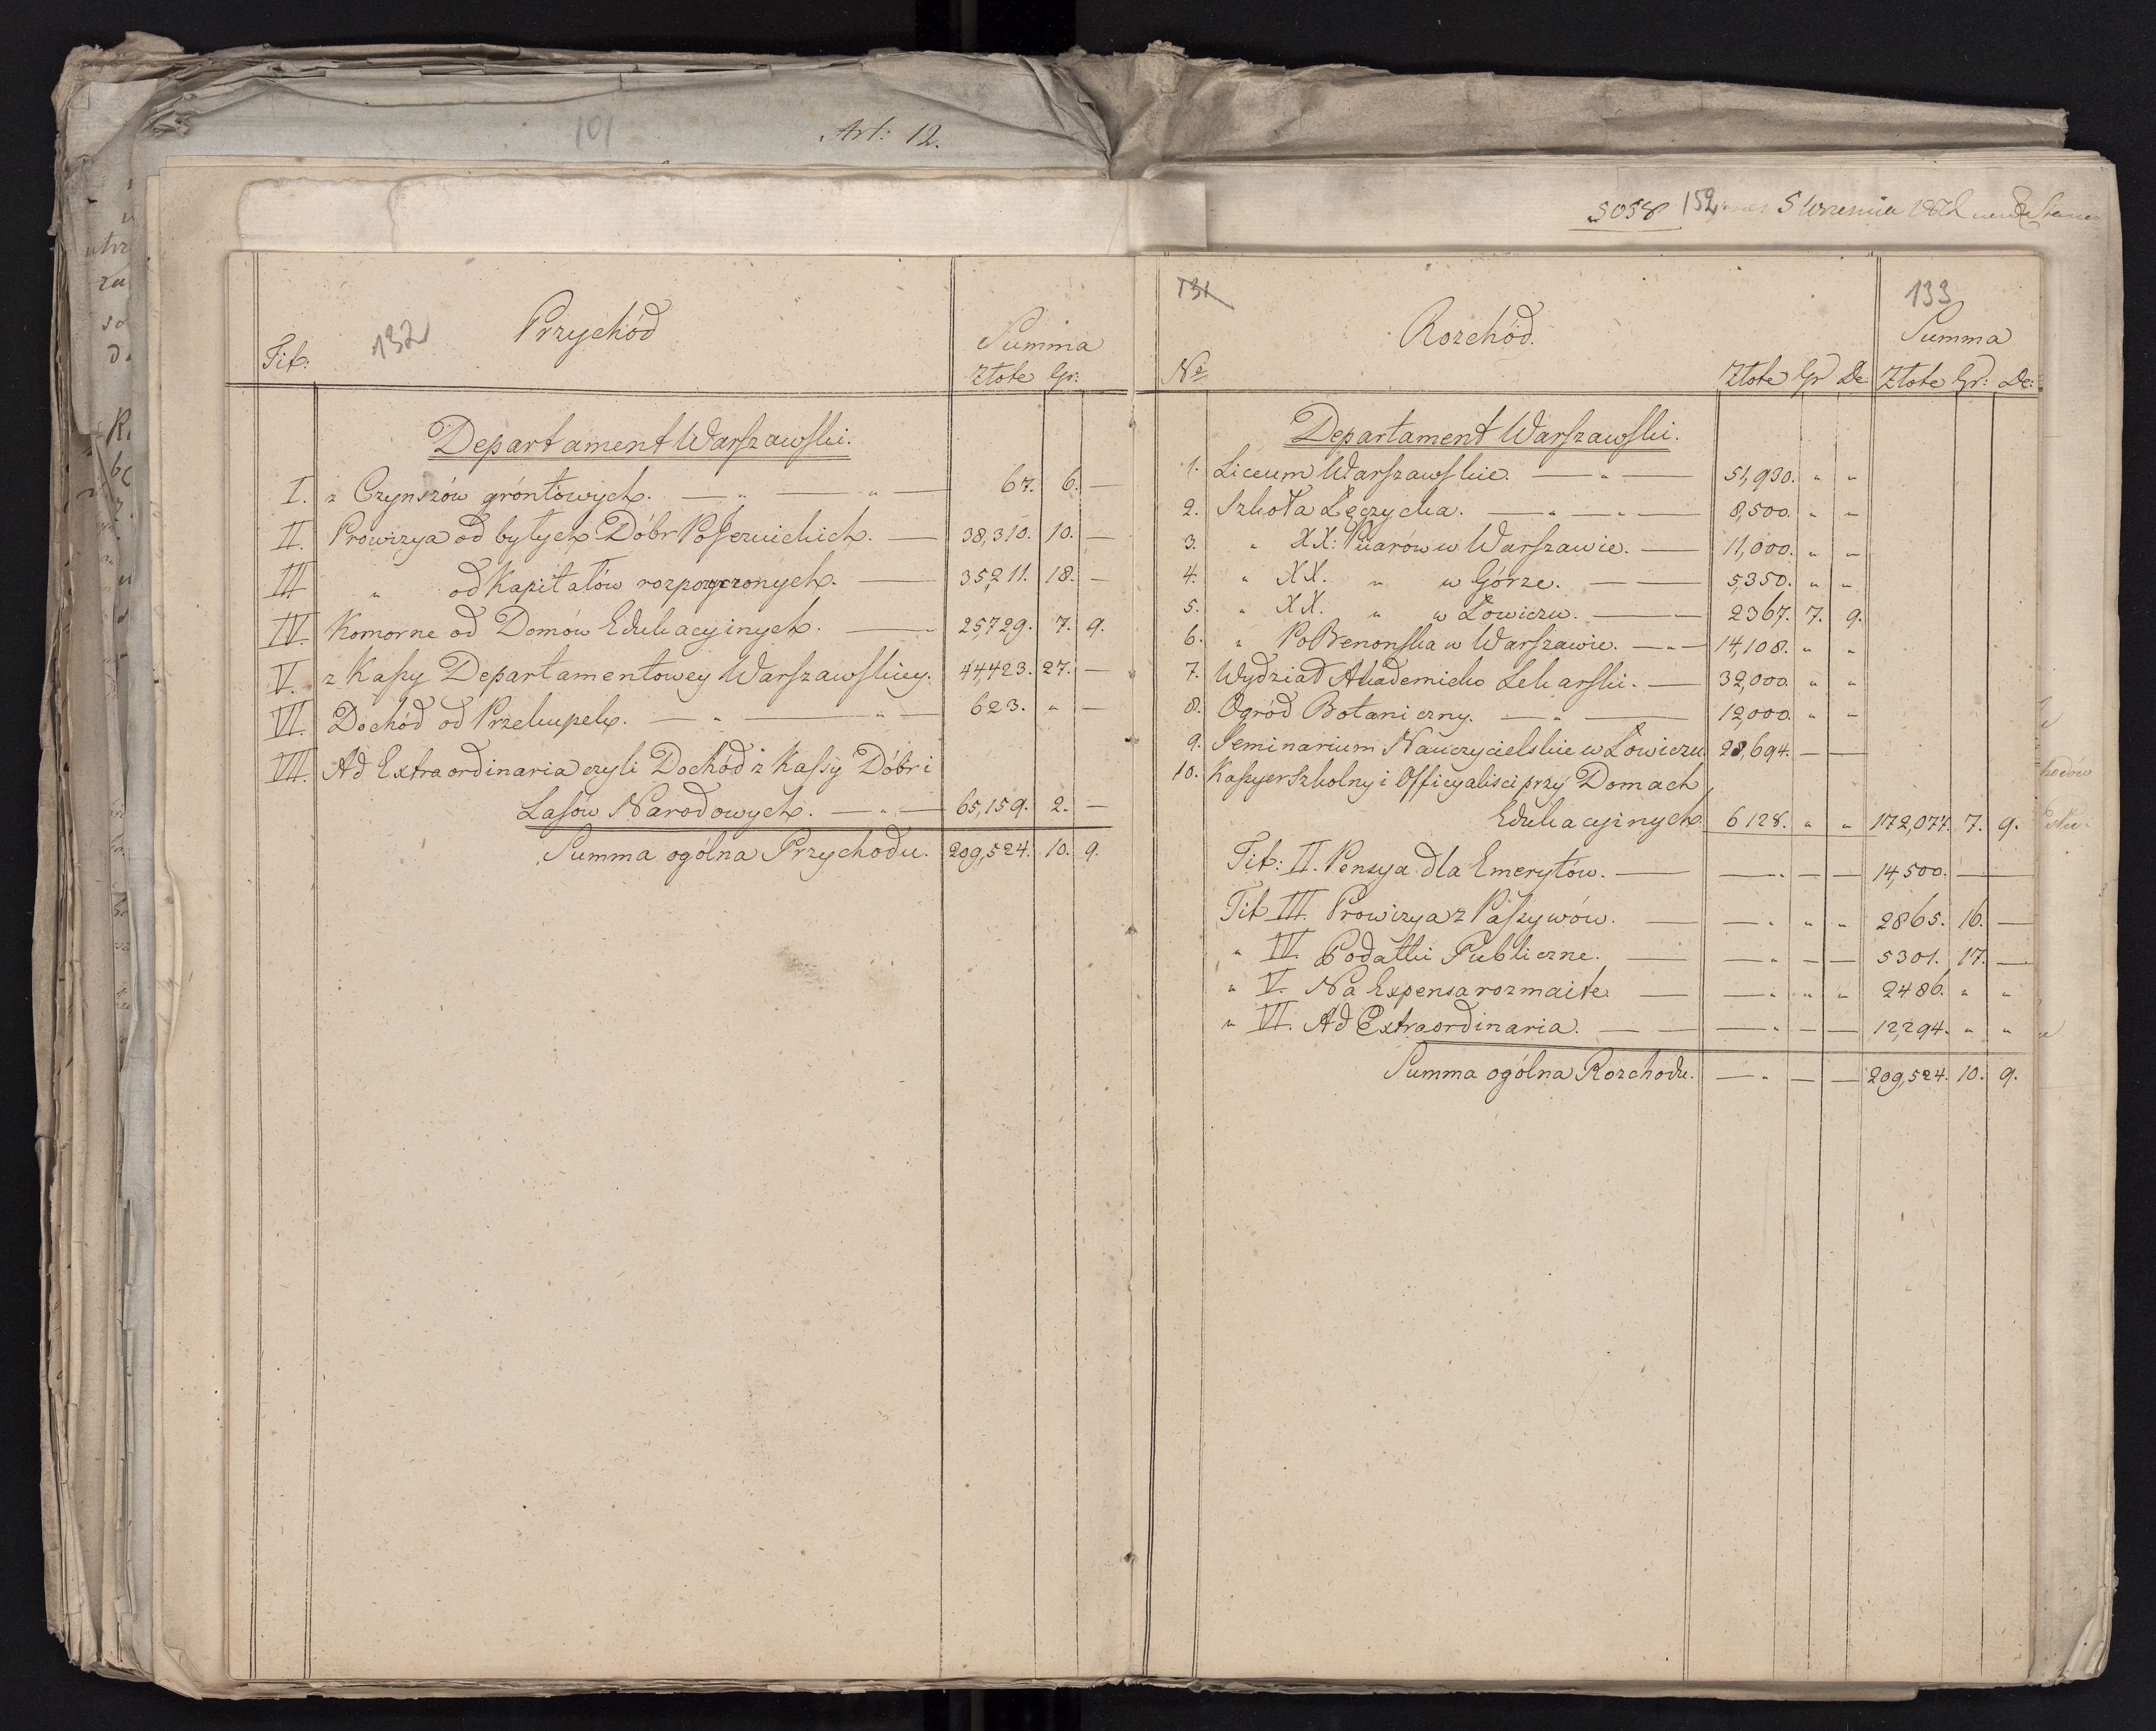 101
Art: 12.
5058 152 5 Września
132
Przychód
Tit:
Summa
Złote Gr:
Departament Warszawski.
I. z Czynszów gróntowych. — „ — „ — 67. 6. —
II. Prowizya od byłych Dóbr PoJezuickich. — 38,310. 10. —
III „ od Kapitałów rozpożyczonych. — 35,211. 18. —
IV. Komorne od Domów Edukacyinych. — 25729. 7. 9.
V. z Kassy Departamentowey Warszawskiey. 44,423. 27. —
VI. Dochód od Przekupek. — „ — „ — 623. „ —
VII. Ad Extraordinaria czyli Dochód z Kassy Dóbr i
Lasów Narodowych. — „ — 65,159. 2. —
Summa ogólna Przychodu. 209,524. 10. 9.
131
133
Rozchód.
Summa
No Złote Gr De: Złote Gr: De:
Departament Warszawski.
1. Liceum Warszawskie. — „ — 51,930. „ „
2. Szkoła Łęczycka. — „ — „ — 8,500. „ „
3. „ XX: Piiarów w Warszawie. — 11,000. „ „
4. „ XX. „ w Górze. — — 5,350. „ „
5. „ XX. „ w Łowiczu. — 2367. 7. 9.
6. „ PoBenonska w Warszawie. — „ — 14,108. „ „
7. Wydział Akademicko Lekarski. — 32,000. „ „
8. Ogród Botaniczny. — „ — 12,000. „ „
9. Seminarium Nauczycielskie w Łowiczu 28,694. — —
10. Kassyer Szkolny i Officyaliści przy Domach
Edukacyinych. 6128. „ „ 172,077. 7. 9.
Tit: II. Pensya dla Emerytów. — — „ — — 14,500. — —
Tit III. Prowizya z Passywów. — — „ „ „ 2865. 16. —
„ IV. Podatki Publiczne. — — „ — — 5301. 17. —
„ V. Na Expensa rozmaite. — — „ „ „ 2486. „ „
„ VI. Ad Extraordinaria. — — — „ — — 12,294. „ „
Summa ogólna Rozchodu. — „ — — 209,524. 10. 9.